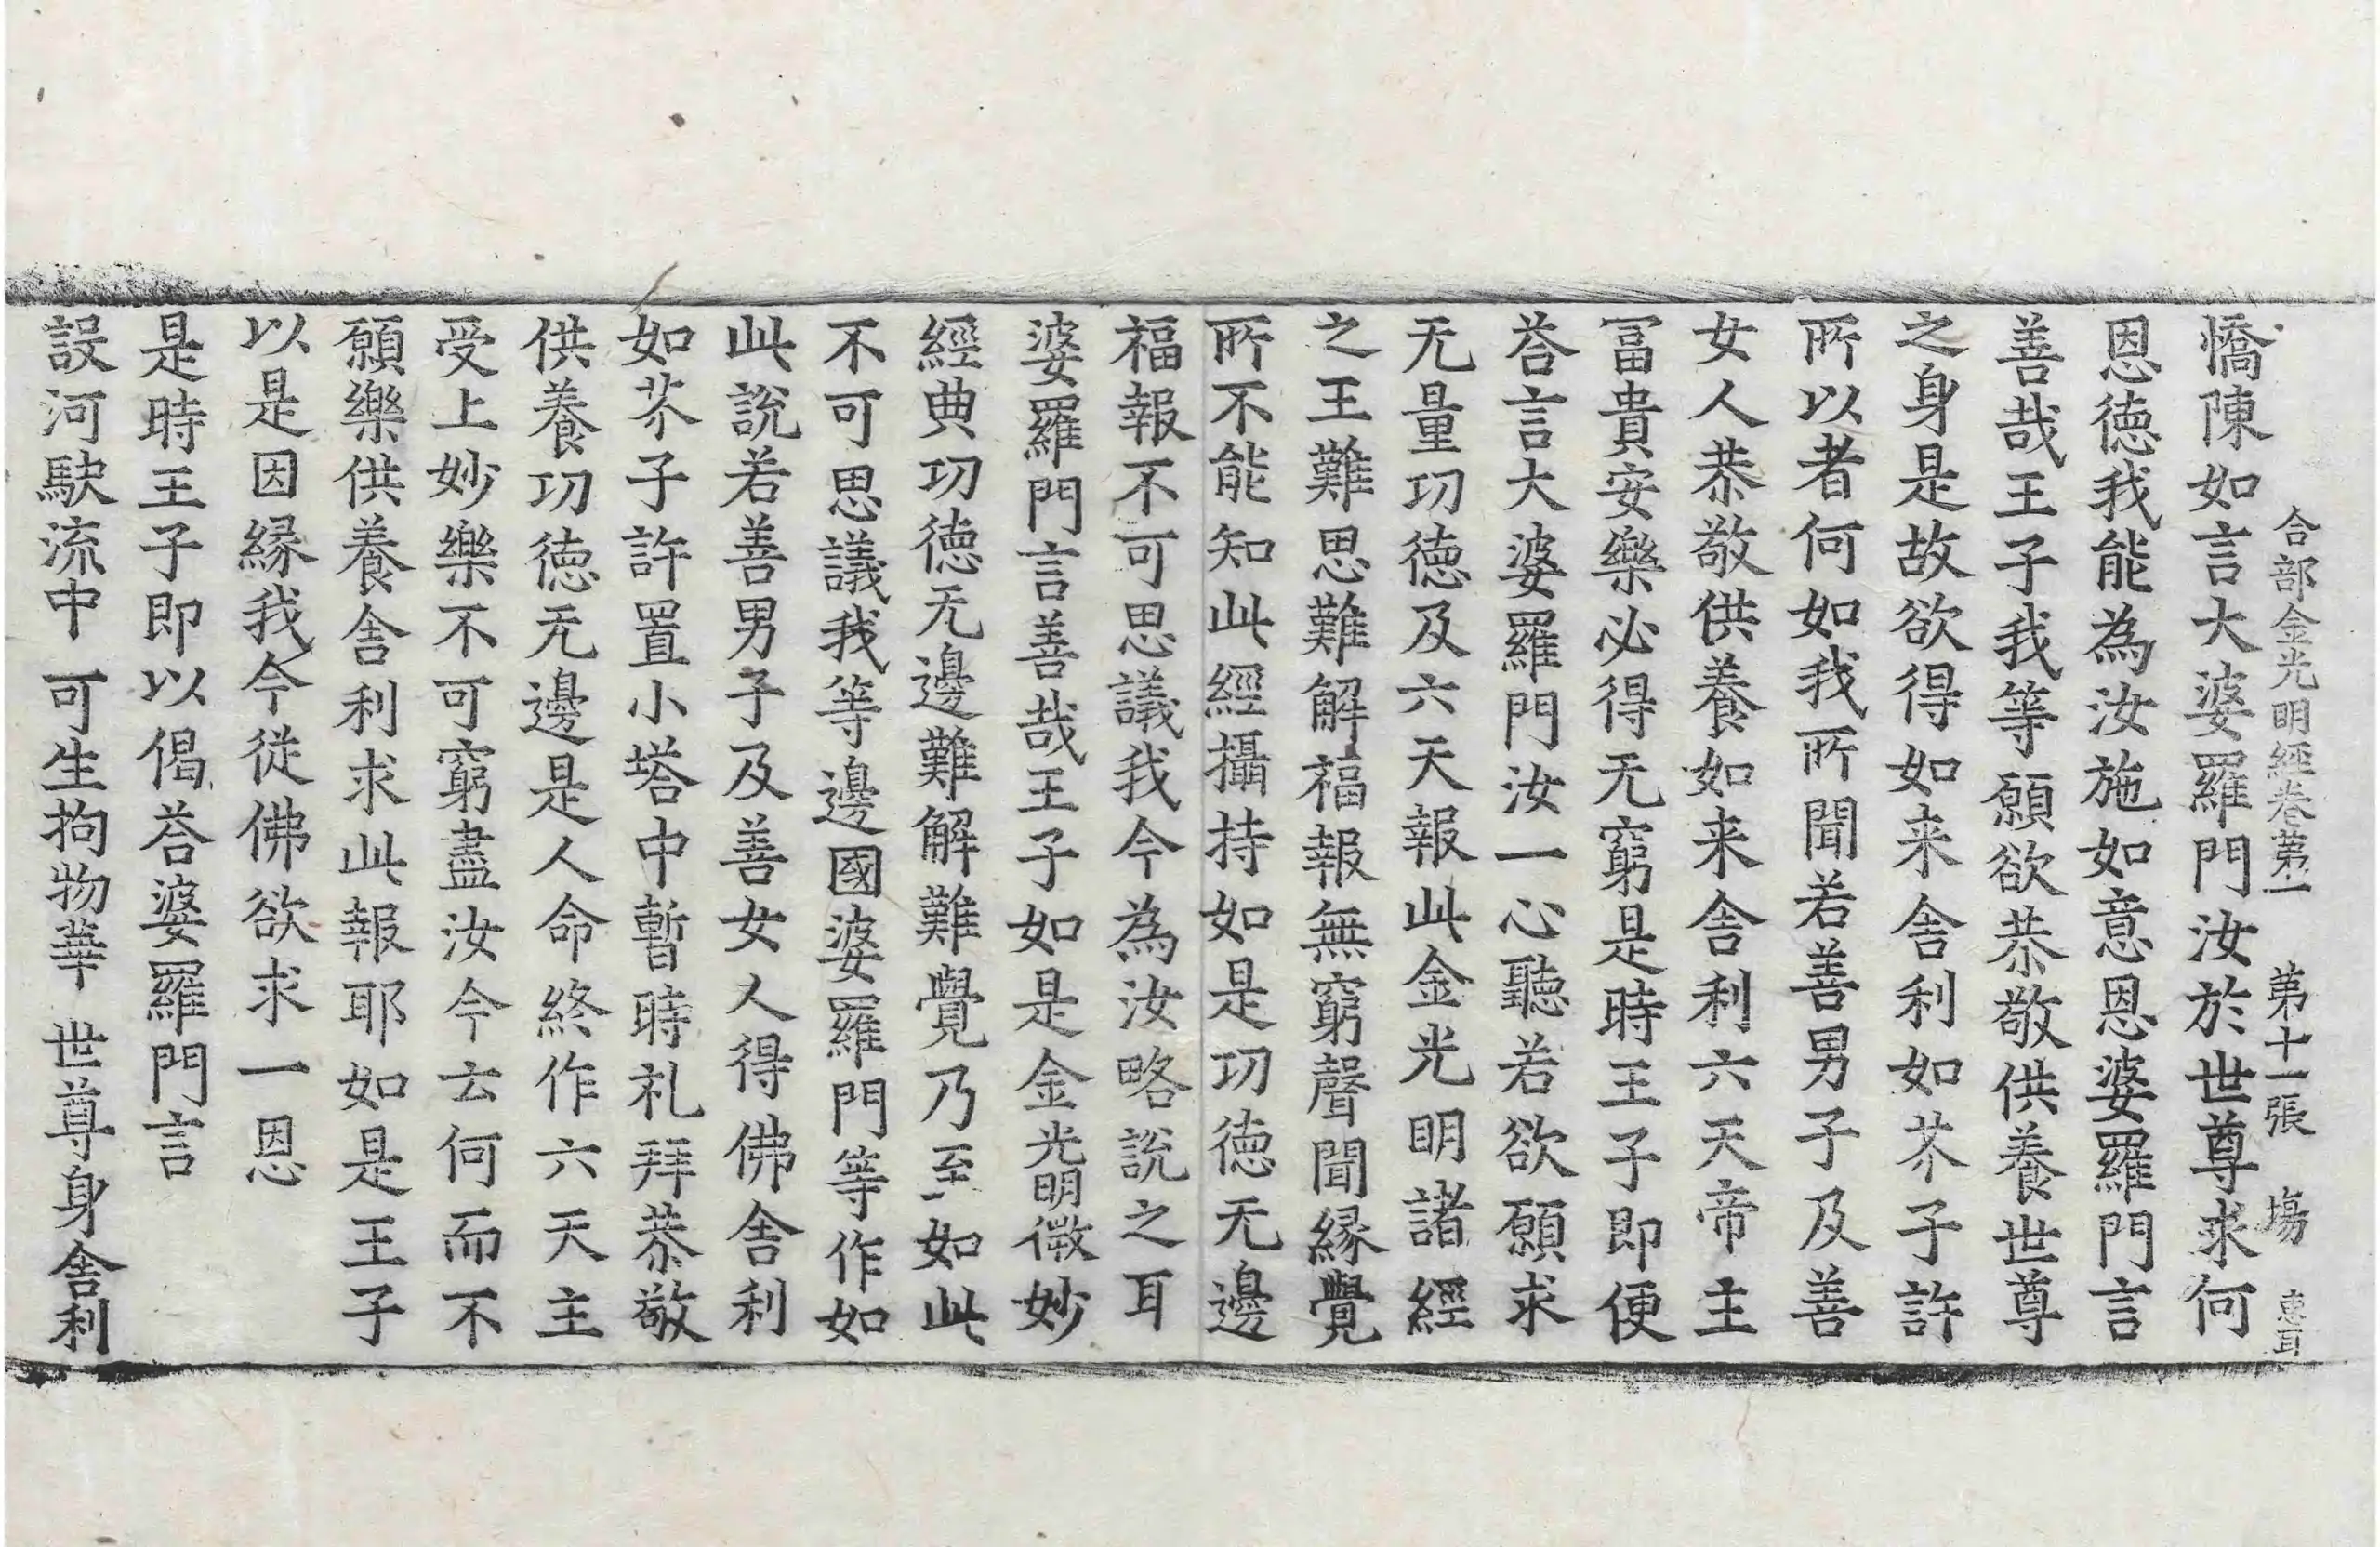 合部金光明經卷苐一　苐十一張　塲　惠耳
憍陳如言大婆羅門汝於世尊求何
恩徳我能為汝施如意恩婆羅門言
善哉王子我等願欲恭敬供養世尊
之身是故欲得如来舍利如芥子許
所以者何如我所聞若善男子及善
女人恭敬供養如来舍利六天帝主
冨貴安樂必得无窮是時王子即便
荅言大婆羅門汝一心聽若欲願求
无量功徳及六天報此金光明諸經
之王難思難解福報無窮聲聞縁覺
所不能知此經攝持如是功徳无邊
福報不可思議我今為汝略説之耳
婆羅門言善哉王子如是金光明微妙
經典功徳无邊難解難覺乃至如此
不可思議我等邊國婆羅門等作如
此說若善男子及善女人得佛舍利
如芥子許置小塔中暫時礼拜恭敬
供養功徳无邊是人命終作六天主
受上妙樂不可窮盡汝今云何而不
願樂供養舍利求此報耶如是王子
以是因縁我今従佛欲求一恩
是時王子即以偈荅婆羅門言
設河駃流中　可生拘物華　世尊身舍利